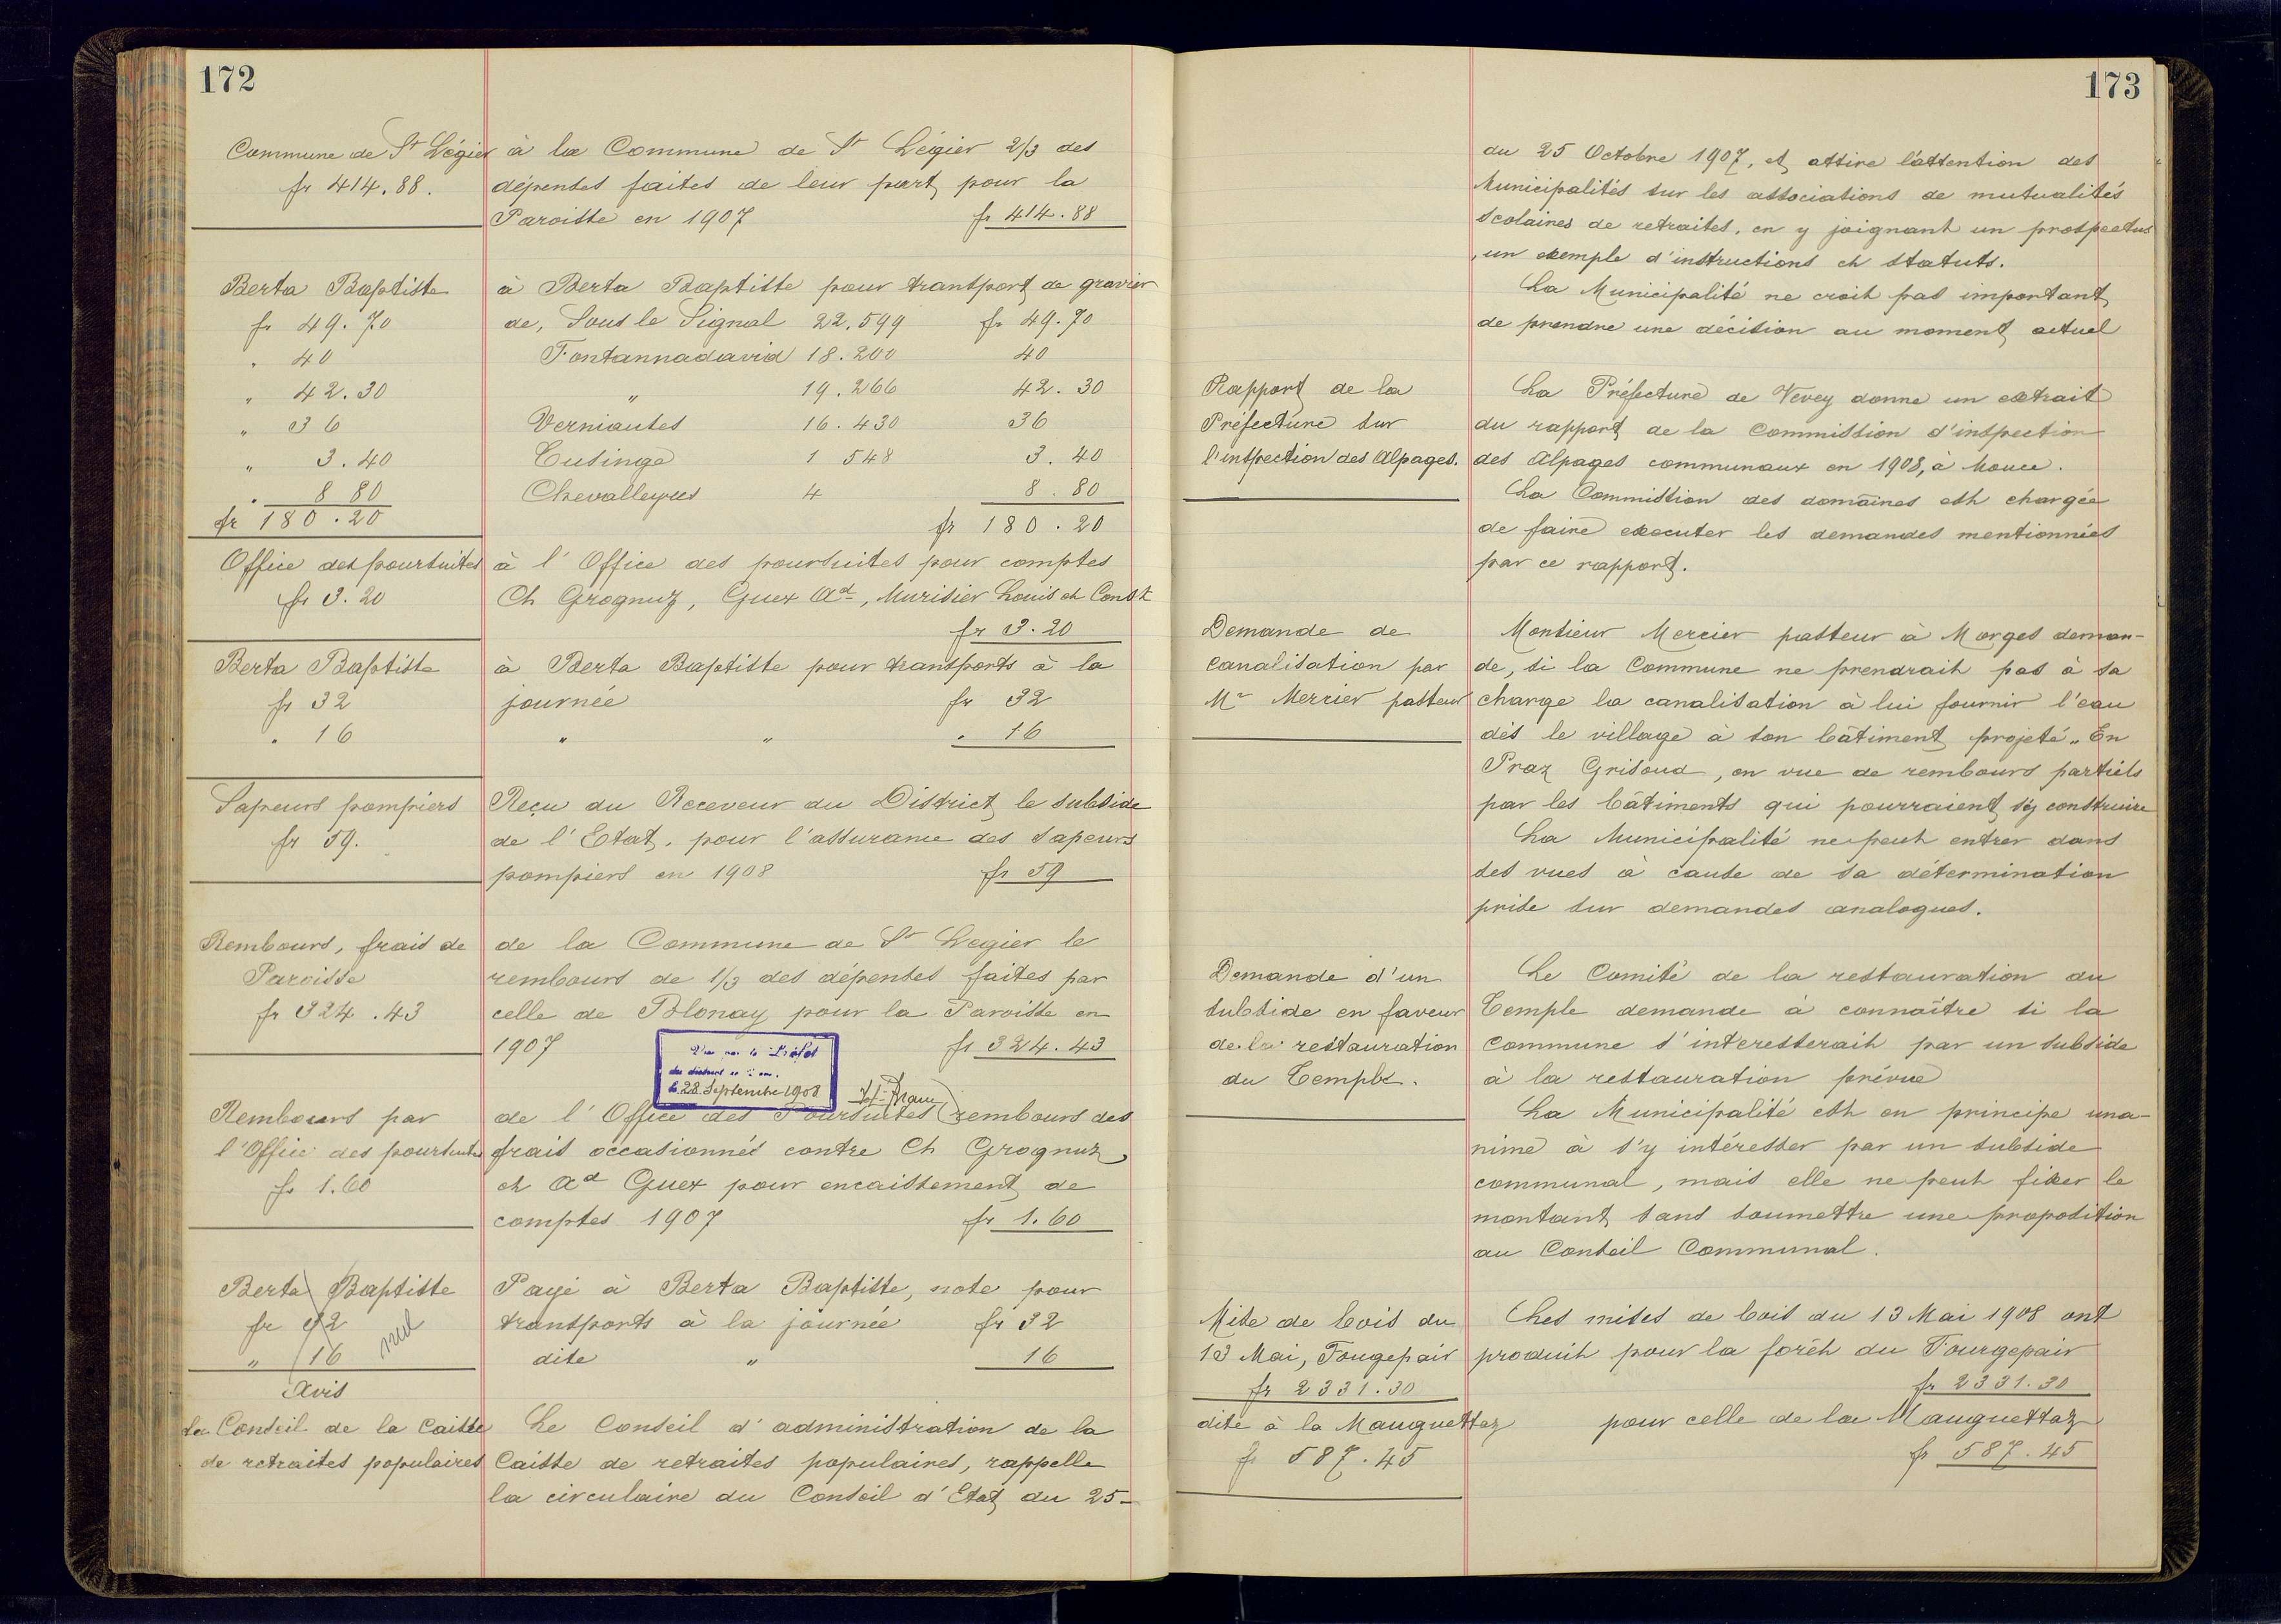 172
Commune de St Légier
fr 414.88.
à la Commune de St Légier 2/3 des
dépenses faites de leur part, pour la
Paroisse en 1907 fr 414.88
Berta Baptiste
fr 49.70
" 40
" 42.30
" 36
" 3.40
" 8 80
fr 180.20
à Berta Baptiste pour transport de gravier
de, Sous le Signal 22.599 fr 49.70
Fontannadavid 18.200 40
" 19.266 42.30
Verniautes 16.430 36
Cusinge 1 548 3.40
Chevalleyres 4 8.80
fr 180.20
Office des poursuites
fr 3.20
à l'Office des poursuites pour comptes
Ch Grognuz, Guex Ad, Murisier Louis et Const
fr 3.20
Berta Baptiste
fr 32
" 16
à Berta Baptiste pour transports à la
journée fr 32
" " " 16
Sapeurs pompiers
fr 59.
Reçu du Receveur du District, le subside
de l'Etat, pour l'assurance des sapeurs
pompiers en 1908 fr 59
Rembours, frais de
Paroisse
fr 324.43
de la Commune de St Legier le
rembours de 1/3 des dépenses faites par
celle de Blonay pour la Paroisse en
1907 fr 324.43
Vu par le Préfet
du district
le 28 Septembre 1908
Rembours par
l'Office des poursuites
fr 1.60
de l'Office des Poursuites rembours des
frais occasionnés contre Ch Grognuz
et Ad Guex pour encaissement de
comptes 1907 fr 1.60
Berta Baptiste
fr 32
" 16
nul
Payé à Berta Baptiste, note pour
transports à la journée fr 32
dite " 16
Avis
du Conseil de la Caisse
de retraites populaires
Le Conseil d'administration de la
Caisse de retraites populaires, rappelle
la circulaire du Conseil d'Etat du 25-
173
du 25 Octobre 1907, et attire l'attention des
Municipalités sur les associations de mutualités
scolaires de retraites, en y joignant un prospectus
, un exemple d'instructions et statuts.
La Municipalité ne croit pas important
de prendre une décision au moment actuel
Rapport de la
Préfecture sur
l'inspection des Alpages.
La Préfecture de Vevey donne un extrait
du rapport de la Commission d'inspection
des Alpages communaux en 1908, à
La Commission des domaines est chargée
de faire executer les demandes mentionnées
par ce rapport.
Demande de
canalisation par
Mr Mercier pasteur
Monsieur Mercier pasteur à Morges deman-
de, si la Commune ne prendrait pas à sa
charge la canalisation à lui fournir l'eau
dès le village à son bâtiment projeté „En
Praz Grisoud, en vue de rembours partiels
par les bâtiments qui pourraient s'y construire
La Municipalité ne peut entrer dans
ses vues à cause de sa détermination
prise sur demandes analogues.
Demande d'un
subside en faveur
de la restauration
du Temple.
Le Comité de la restauration du
Temple demande à connaître si la
Commune s'interesserait par un subside
à la restauration prévue
La Municipalité est en principe una-
nime à s'y intéresser par un subside
communal, mais elle ne peut fixer le
montant sans soumettre une proposition
au Conseil Communal.
Mise de bois du
13 Mai, Fougepair
fr 2331.30
dite à la Mauguettaz
fr 587.45
Les mises de bois du 13 Mai 1908 ont
produit pour la forêt du Fourgepair
fr 2331.30
pour celle de la Mauguettaz
fr 587.45